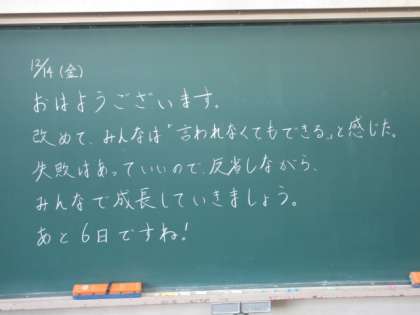 12/14(金)
おはようございます。
改めて、みんなは「言われなくてもできる」と感じた。
失敗はあっていいので、反省しながら、
みんなで成長していきましょう。
あと6日ですね!